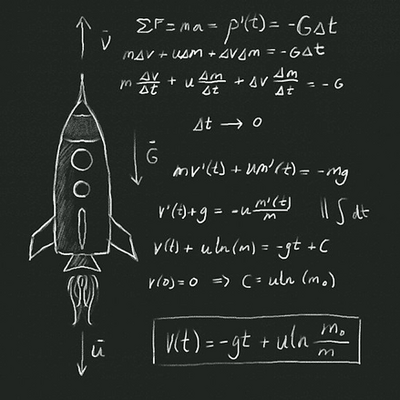 ΣF = ma = p'(t) = -GΔt
v̄
mΔv + uΔm + ΔvΔm = -GΔt
m Δv/Δt + u Δm/Δt + Δv Δm/Δt = -G
Δt → 0
Ḡ
mv'(t) + um'(t) = -mg
v'(t) + g = -u m'(t)/m || ∫ dt
v(t) + u ln(m) = -gt + C
v(0) = 0 ⇒ C = u ln(m₀)
v(t) = -gt + u ln m₀/m
ū